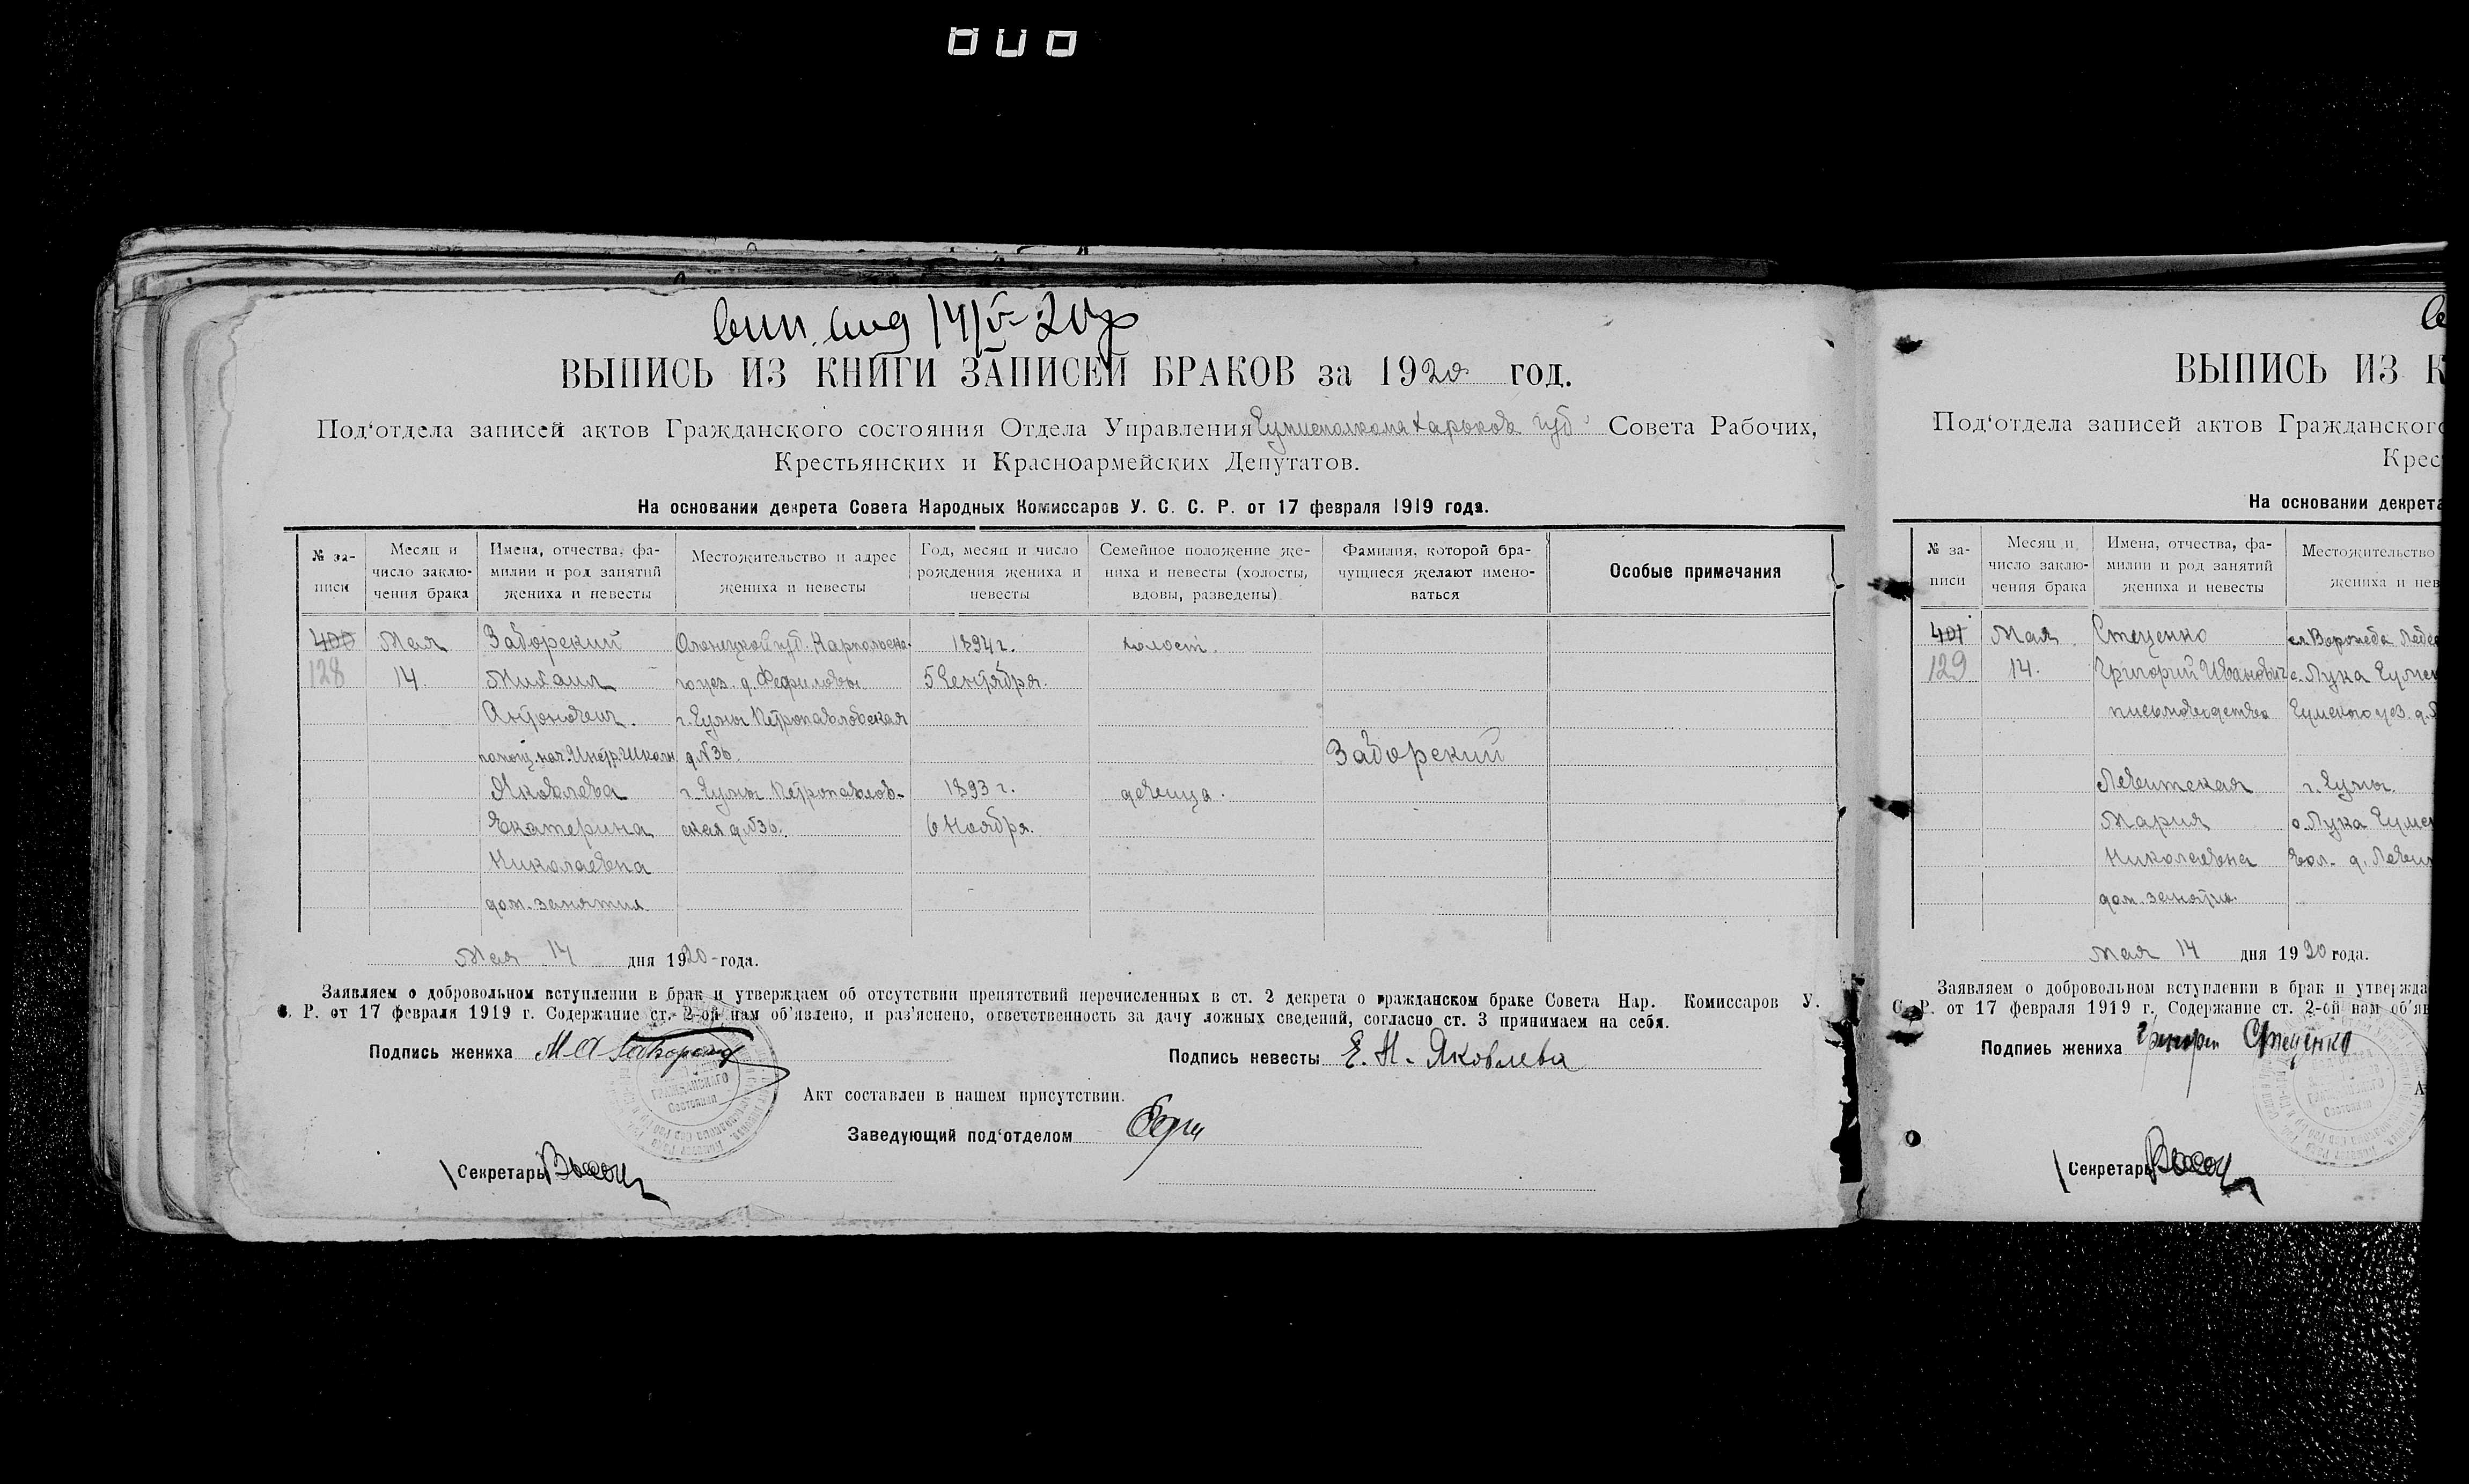 вып. выд 14/V-20 г
ВЫПИСЬ ИЗ КНИГИ ЗАПИСЕЙ БРАКОВ за 1920 год.
Под‘отдела записей актов Гражданского состояния Отдела Управления Сумисполкома Харьков губ. Совета Рабочих,
Крестьянских и Красноармейских Депутатов.
На основании декрета Совета Народных Комиссаров У. С. С. Р. от 17 февраля 1919 года.
№ за-
писи
Месяц и
число заклю-
чения брака
Имена, отчества, фа-
милии и род занятий
жениха и невесты
Местожительство и адрес
жениха и невесты
Год, месяц и число
рождения жениха и
невесты
Семейное положение же-
ниха и невесты (холосты,
вдовы, разведены)
Фамилия, которой бра-
чущиеся желают имено-
ваться
Особые примечания
400
128
Мая
14.
Заборский
Михаил
Антонович.
помощ. нач. Инстр. Школы
Яковлева
Екатерина
Николаевна
дом. занятия
Олонецкой губ. Карпольско-
го уез. д.
г. Сумы Петропавловская
д №36.
г. Сумы Петропавлов-
ская д №36.
1894 г.
5 Сентября.
1893 г.
6 Ноября.
холост.
девица.
Заборский
Мая 14 дня 1920 года.
Заявляем о добровольном вступлении в брак и утверждаем об отсутствии препятствий перечисленных в ст. 2 декрета о гражданском браке Совета Нар. Комиссаров У.
С. Р. от 17 февраля 1919 г. Содержание ст. 2-ой нам об‘явлено, и раз‘яснено, ответственность за дачу ложных сведений, согласно ст. 3 принимаем на себя.
Подпись жениха М А Заборский
Подпись невесты Е. Н. Яковлева
Гражданского
Состояния
Акт составлен в нашем присутствии.
Заведующий под‘отделом
Секретарь
ВЫПИСЬ ИЗ К
Под‘отдела записей актов Гражданского
Крес
На основании декрета
№ за-
писи
Месяц и
число заклю-
чения брака
Имена, отчества, фа-
милии и род занятий
жениха и невесты
Местожительство
жениха и нев
401
129
Мая
14.
Стеценко
Григорий Иванович
письмоводитель
Левитская
Мария
Николаевна
дом. занятия.
сл. Ворожба Лебед
с. Лука Сумск
Сумского уез. д.
г. Сумы.
с. Лука Сумск
вол. д. Левит
Мая 14 дня 1920 года.
Заявляем о добровольном вступлении в брак и утвержда
С. Р. от 17 февраля 1919 г. Содержание ст. 2-ой нам об‘яв
Подпись жениха Григорий Стеценко
Гражданского
Состояния
А
Секретарь